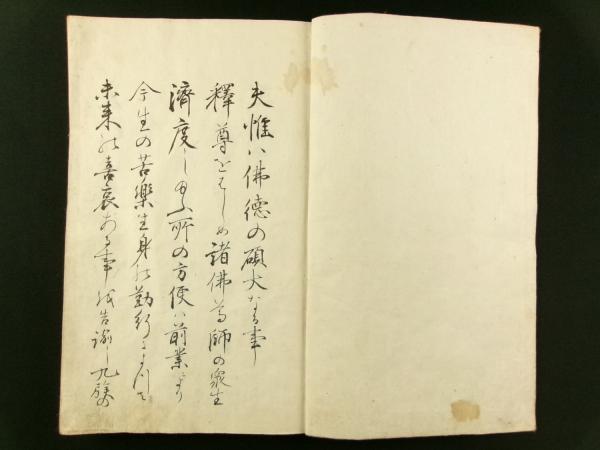 夫惟ハ佛徳の碩大なる事
釋尊をはじめ諸佛菩師の衆生
濟度し所の方便ハ前業より
今生の苦樂生身の勤行によつて
未來の喜哀ある事を告諭し九族の